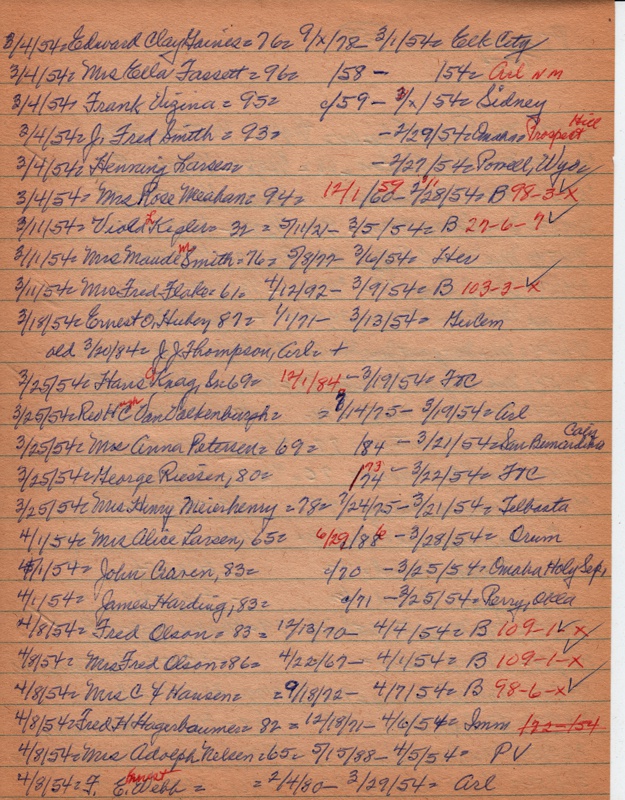 3/4/54= Edward Clay Haines = 76= 9/x/78- 3/1/54= Elk City
3/4/54= Mrs Ella Fassett = 96= /58 - /54= Arl nm
3/4/54= Frank Vigina = 95= c/59 - 3/x/54= Sidney
3/4/54= J. Fred Smith = 93= - 2/29/54= Omaha Prospect Hill
3/4/54= Henning Larsen= - 2/27/54= Powell, Wyo
3/4/54= Mrs Rose Meahan= 94= 12/1/60 59 - 2/28/54= B 98-3-x
3/11/54= Viola Kepler= 32 = 5/11/21- 3/5/54= B 27-6-7
3/11/54= Mrs Maude m Smith = 76= 5/8/77- 3/6/54= Her
3/11/54= Mrs Fred Flake= 61= 4/12/92- 3/9/54= B 103-3-x
3/18/54= Ernest O. Huber 87= 1/1/71- 3/13/54=
old 3/20/84= J J Thompson, Arl= +
3/25/54= Hans Krag, Sr= 69= 12/1/84 - 3/19/54= FtC
3/25/54= Rev H C Van Valkenburgh= = 8/14/75- 3/19/54= Arl
3/25/54= Mrs Anna Petersen= 69= /84 - 3/21/54= San Bernardino Calif
3/25/54= George Riessen, 80= /74 73 - 3/22/54= FtC
3/25/54= Mrs. Henry Meierhenry = 78= 7/24/75- 3/21/54= Telbasta
4/1/54= Mrs Alice Larsen, 65= 6/29/88 - 3/28/54= Orum
4/1/54= John Craven, 83= c/70 - 3/25/54= Omaha Holy Sep,
4/1/54= James Harding, 83= c/71 - 3/25/54= Perry, Okla
4/8/54= Fred Olson = 83 = 12/13/70- 4/4/54= B 109-1-x
4/8/54= Mrs Fred Olson=86= 4/22/67- 4/1/54= B 109-1-x
4/8/54= Mrs C F Hansen= =9/18/72- 4/7/54= B 98-6-x
4/8/54= Fred H Hagerbaumer= 82 = 12/18/71- 4/6/54= Imm 172-154
4/8/54= Mrs Adolph Nelsen=65= 5/15/88- 4/5/54= PV
4/8/54= F. Ernest E. Webb = = 2/4/80- 3/29/54= Arl